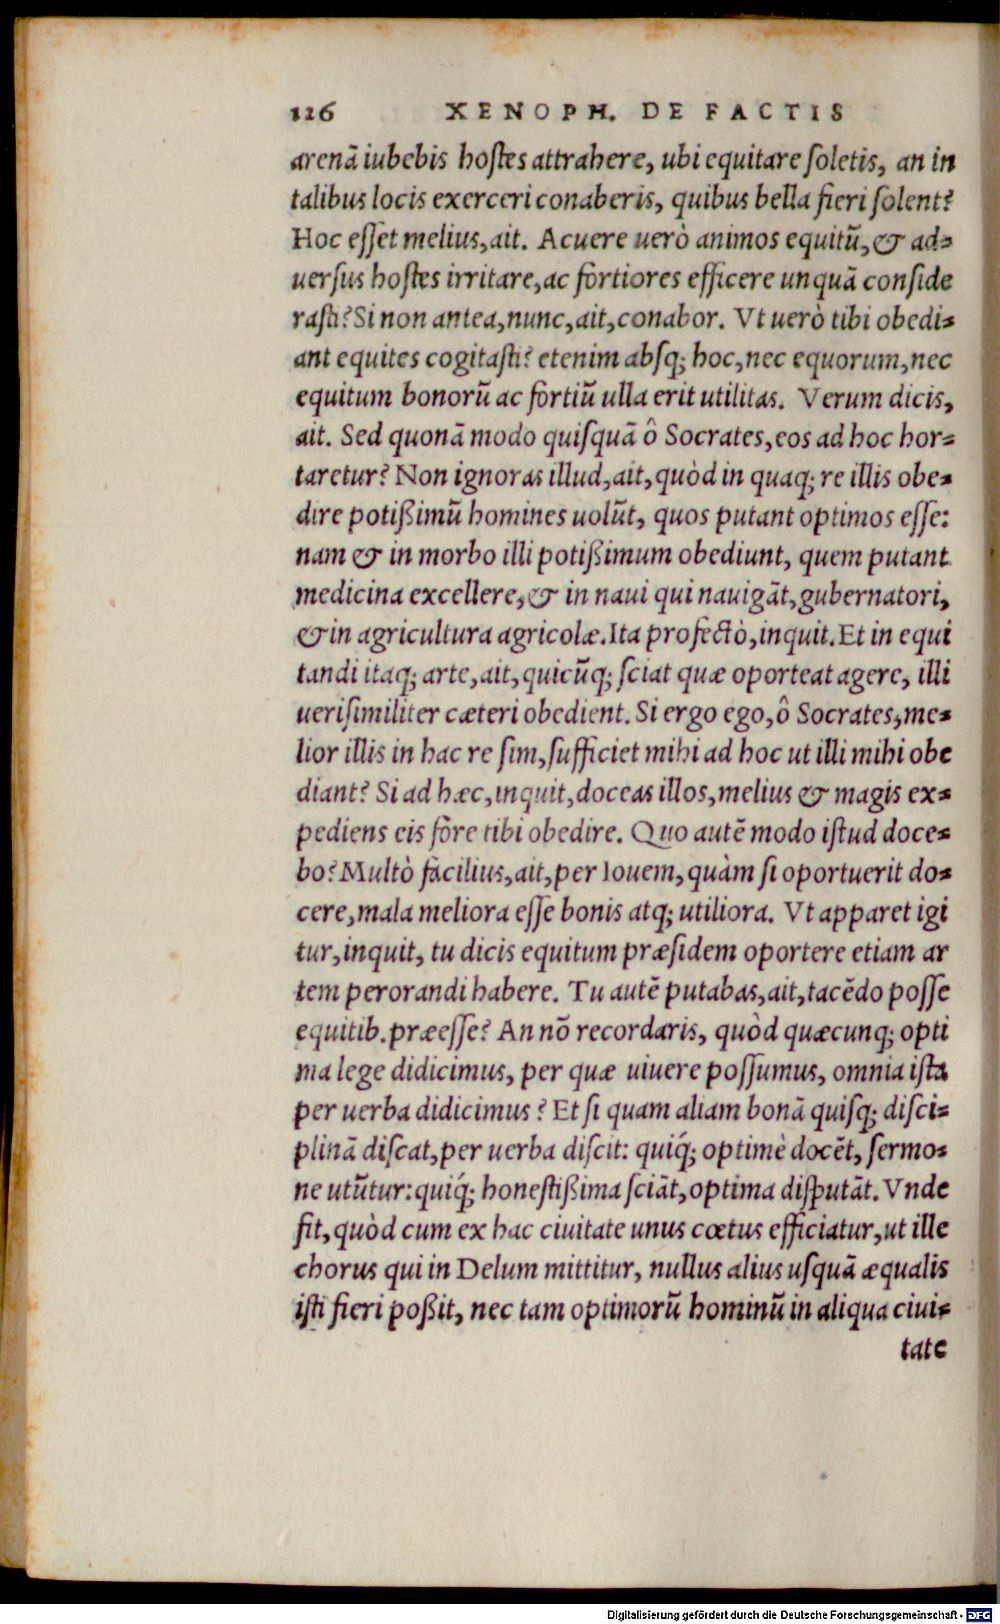 126 XENOPH. DE FACTIS
arenã iubebis hoſtes attrahere, ubi equitare ſoletis, an in
talibus locis exerceri conaberis, quibus bella fieri ſolent?
Hoc eſſet melius, ait. Acuere uerò animos equitũ, & ad-
uerſus hoſtes irritare, ac fortiores efficere unquã conſide
raſti? Si non antea, nunc, ait, conabor. Vt uerò tibi obedi-
ant equites cogitaſti? etenim abſq; hoc, nec equorum, nec
equitum bonorũ ac fortiũ ulla erit utilitas. Verum dicis,
ait. Sed quonã modo quiſquã ô Socrates, eos ad hoc hor-
taretur? Non ignoras illud, ait, quòd in quaq; re illis obe-
dire potißimũ homines uolũt, quos putant optimos eſſe:
nam & in morbo illi potißimum obediunt, quem putant
medicina excellere, & in naui qui nauigãt, gubernatori,
& in agricultura agricolæ. Ita profectò, inquit. Et in equi
tandi itaq; arte, ait, quicũq; ſciat quæ oporteat agere, illi
ueriſimiliter cæteri obedient. Si ergo ego, ô Socrates, me-
lior illis in hac re ſim, ſufficiet mihi ad hoc ut illi mihi obe
diant? Si ad hæc, inquit, doceas illos, melius & magis ex-
pediens eis fore tibi obedire. Quo autẽ modo iſtud doce-
bo? Multò facilius, ait, per Iouem, quàm ſi oportuerit do-
cere, mala meliora eſſe bonis atq; utiliora. Vt apparet igi
tur, inquit, tu dicis equitum præſidem oportere etiam ar
tem perorandi habere. Tu autẽ putabas, ait, tacẽdo poſſe
equitib. præeſſe? An nõ recordaris, quòd quæcunq; opti
ma lege didicimus, per quæ uiuere poſſumus, omnia iſta
per uerba didicimus? Et ſi quam aliam bonã quiſq; diſci-
plinã diſcat, per uerba diſcit: quiq́; optimè docẽt, ſermo-
ne utũtur: quiq́; honeſtißima ſciãt, optima diſputãt. Vnde
fit, quòd cum ex hac ciuitate unus cœtus efficiatur, ut ille
chorus qui in Delum mittitur, nullus alius uſquã æqualis
iſti fieri poßit, nec tam optimorũ hominũ in aliqua ciui-
tate
Digitalisierung gefördert durch die Deutsche Forschungsgemeinschaft - DFG